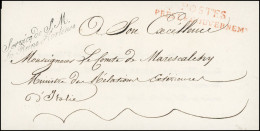 Service de S. M.
POSTES
A Son Excellence
Monseigneur Le Comte de Marescalchy
Ministre des Relations Extérieures
d'Italie